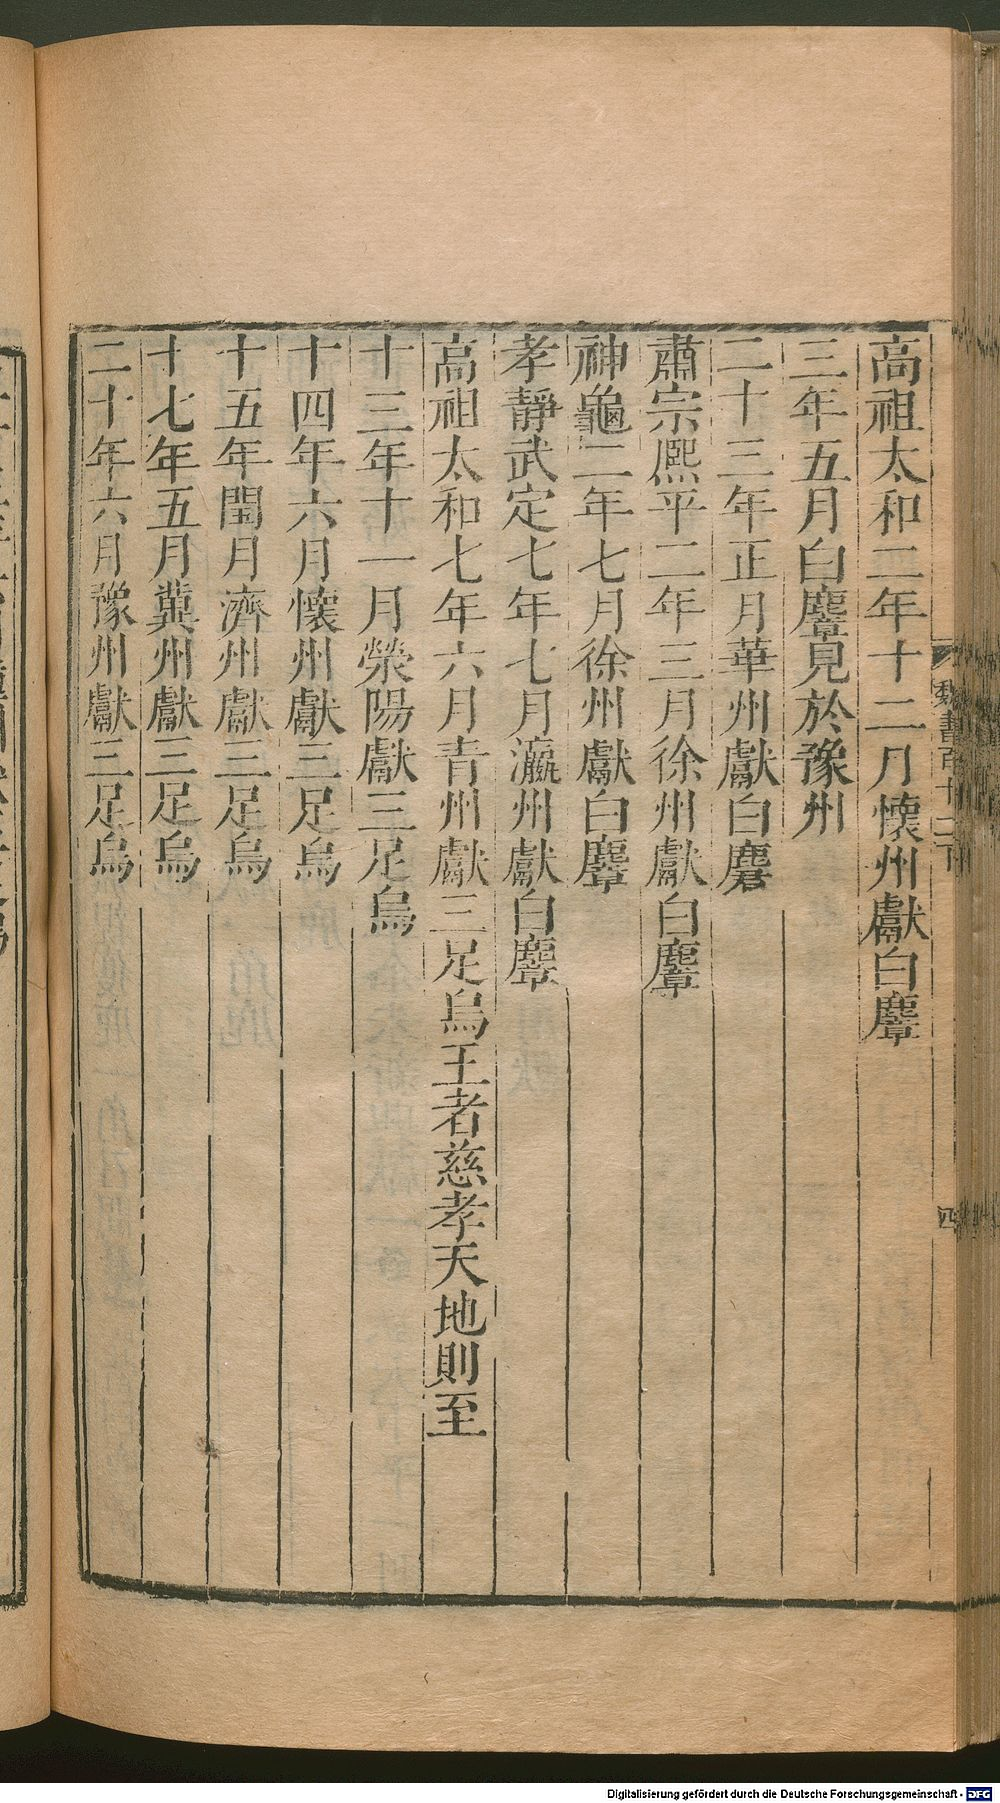 高祖太和二年十二月懷州獻白麞
三年五月白麞見於豫州
二十三年正月華州獻白麏
肅宗熙平二年三月徐州獻白麞
神龜二年七月徐州獻白麞
孝靜武定七年七月瀛州獻白麞
高祖太和七年六月青州獻三足烏王者慈孝天地則至
十三年十一月滎陽獻三足烏
十四年六月懷州獻三足烏
十五年閏月濟州獻三足烏
十七年五月冀州獻三足烏
二十年六月豫州獻三足烏
魏書百十二下
四
Digitalisierung gefördert durch die Deutsche Forschungsgemeinschaft - DFG